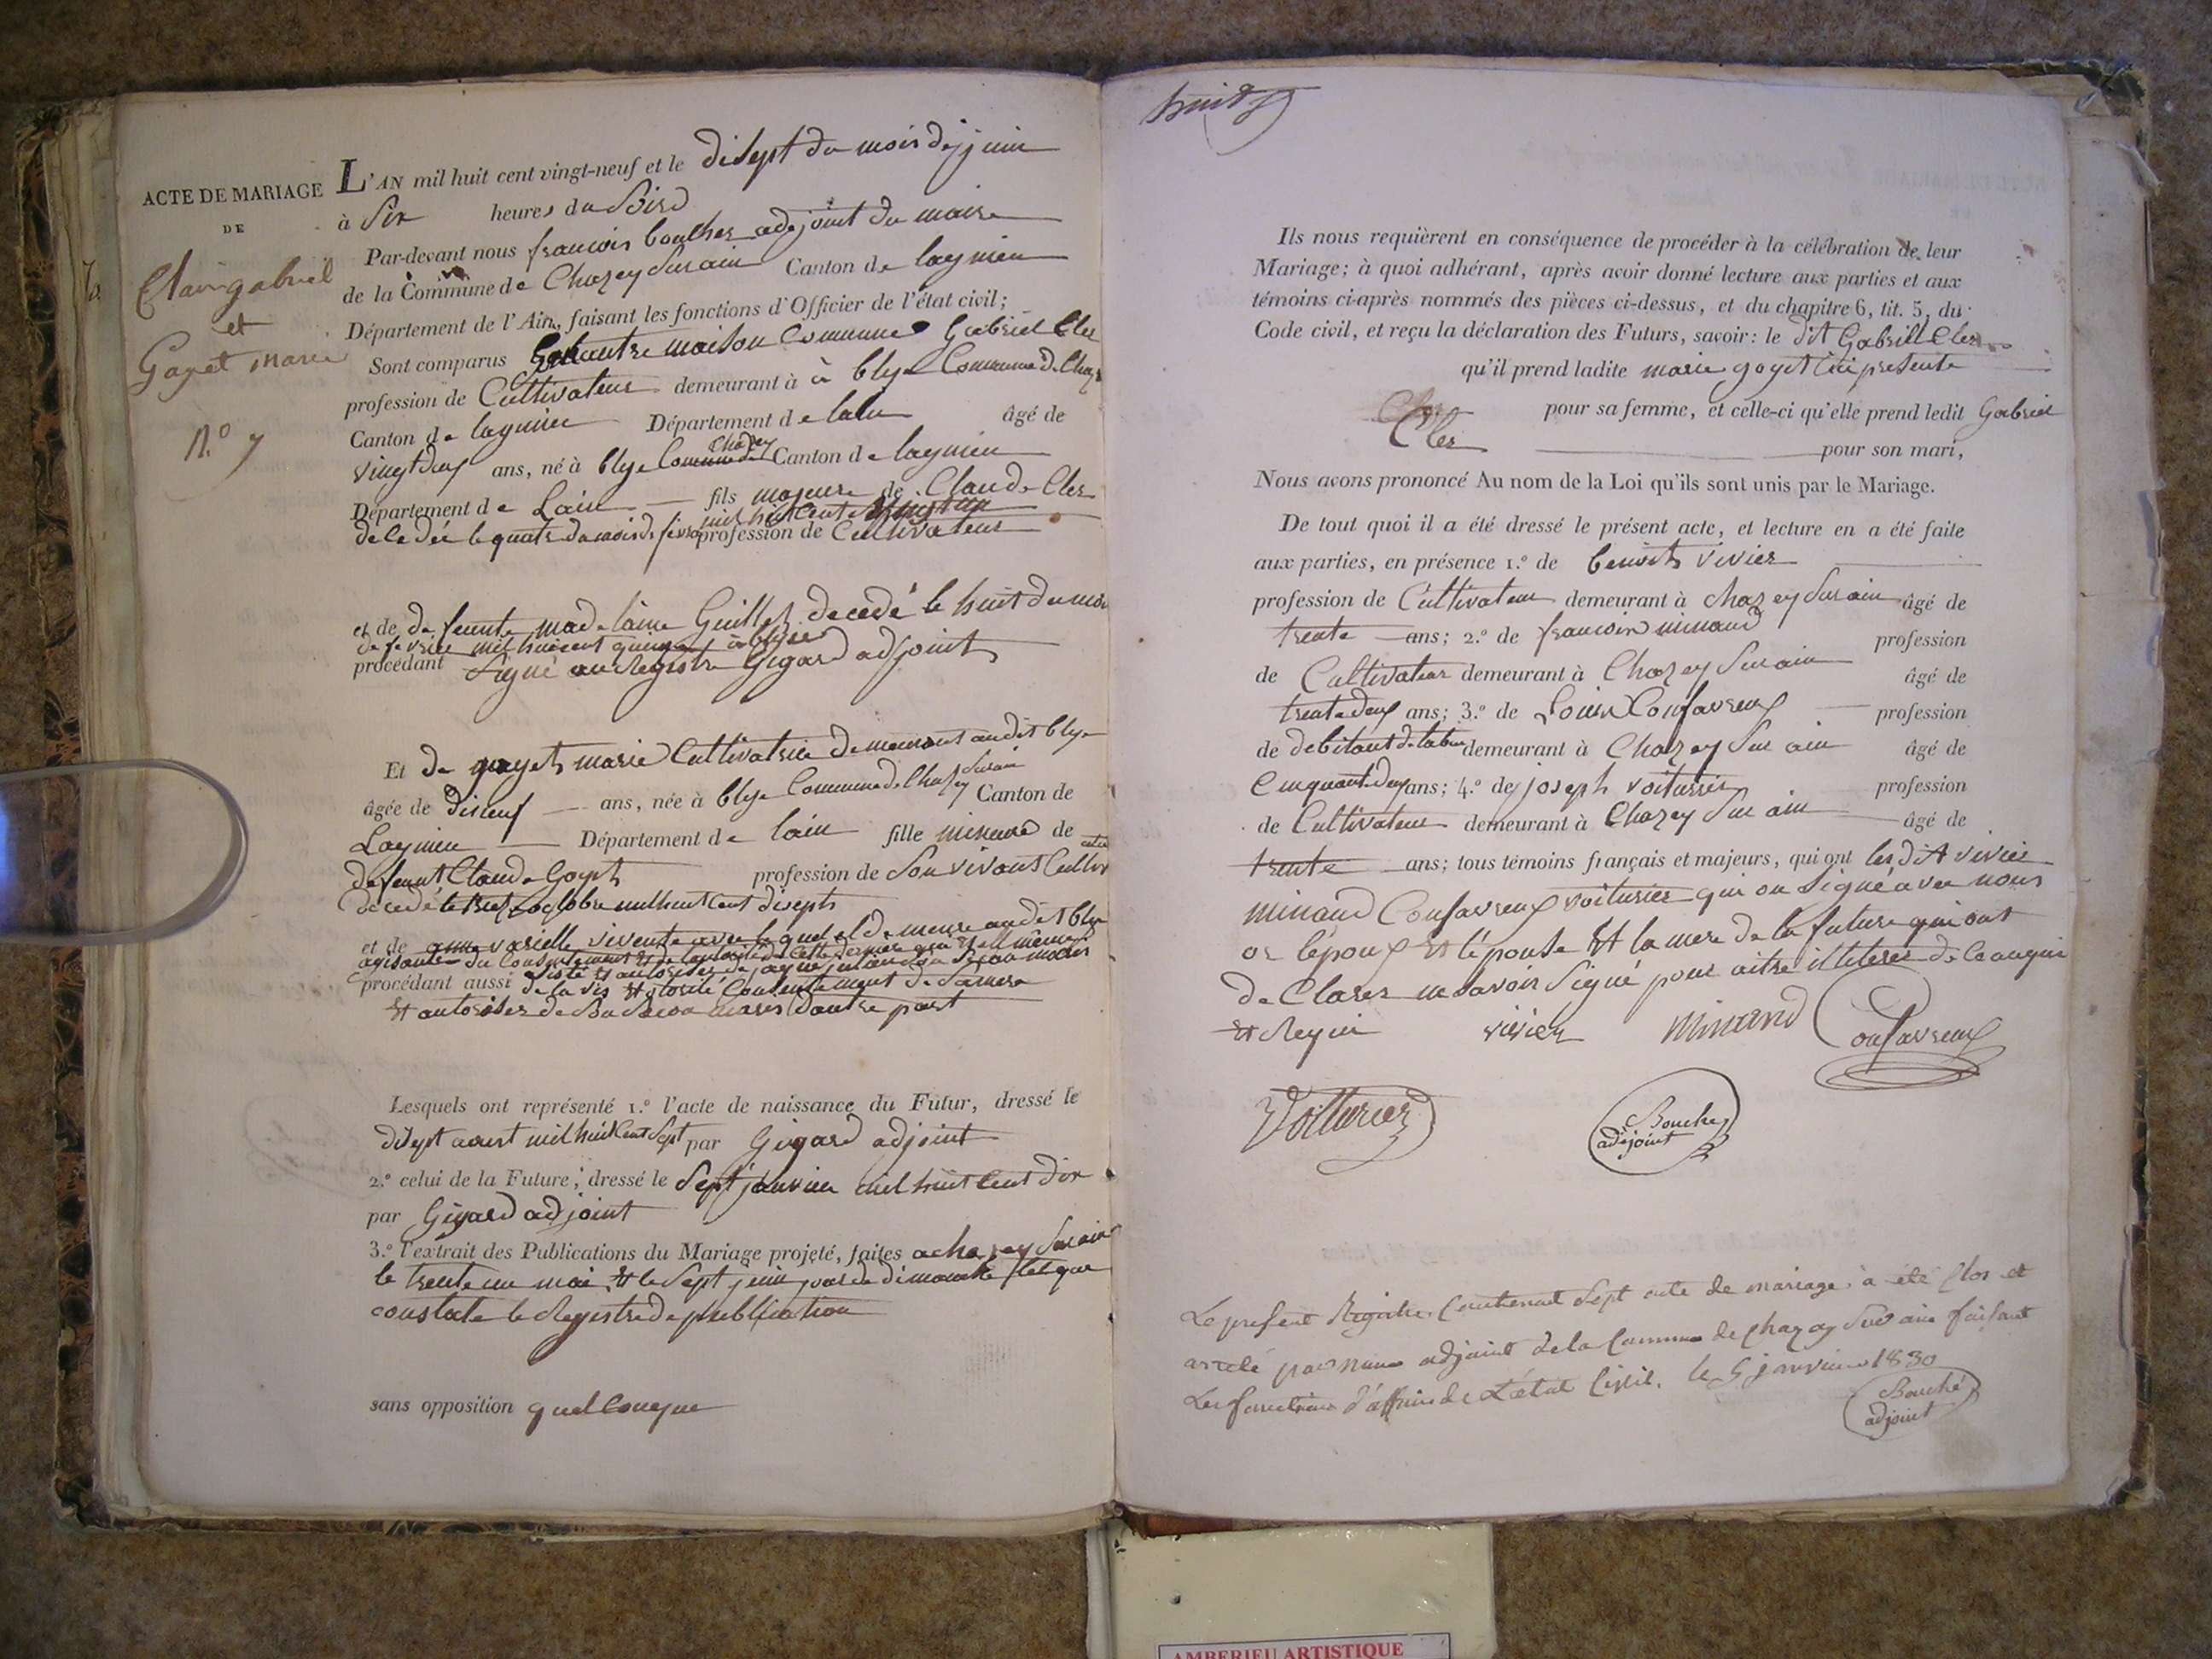 ACTE DE MARIAGE
DE
Clair gabriel
et
Gayet marie
N.o 7
L'AN mil huit cent vingt-neuf et le disept du mois de juin
à Six heures du Soird
Par-devant nous francois bouchez adejoint du maire
de la Commune de Chazey Surain Canton de lagnieu
Département de l'Ain, faisant les fonctions d'Officier de l'état civil;
Sont comparus maison Commune Gabriel Cler
profession de Cultivateur demeurant à à blye Commune de Chaz
Canton de lagnieu Département de lain âgé de
vingt deux ans, né à blye Commune de Chazey Canton de lagnieu
Département de Lain fils majeure de Claude Cler
mil huit cent
decedée le quatre du mois de profession de Cultivateur
et de de feunte madelaine Guillet decedé le huit du moi
de fevrie mil huit cent quinze à blye
procédant Signé au Registre Gigard adjoint
Et de goyet marie Cultivatrice demeurant audit blye
âgée de disneuf ans, née à blye Commune de Chazey Surain Canton de
Lagnieu Département de lain fille mineure de
defeunt Claude Goyet profession de Son vivant Cultiv
decedé le octobre mil huit cent disepts
et de anne varielle vivente avec lequel el demeure audit blye
agisante du Consentement et de
procédant aussi de la vis Consentement de Samere
Et autorisés de Dautre part
Lesquels ont représenté 1.º l'acte de naissance du Futur, dressé le
disept aoust mil huit Cent Sept par Gigard adjoint
2.º celui de la Future, dressé le Sept janvier mil huit Cent dix
par Gigard adjoint
3.º l'extrait des Publications du Mariage projeté, faites a chazey Surain
le trente un mai et le Sept juin jour de dimanche
constate le Registre de publication
sans opposition quelconque
huit
Ils nous requièrent en conséquence de procéder à la célébration de leur
Mariage; à quoi adhérant, après avoir donné lecture aux parties et aux
témoins ci-après nommés des pièces ci-dessus, et du chapitre 6, tit. 5, du
Code civil, et reçu la déclaration des Futurs, savoir: le dit Gabriel Cler
qu'il prend ladite marie goyet ici presente
pour sa femme, et celle-ci qu'elle prend ledit Gabriel
Cler pour son mari,
Nous avons prononcé Au nom de la Loi qu'ils sont unis par le Mariage.
De tout quoi il a été dressé le présent acte, et lecture en a été faite
aux parties, en présence 1.º de benoits vivier
profession de Cultivateur demeurant à chazey Surain âgé de
trente ans; 2.º de francoin minand profession
de Cultivateur demeurant à Chazey Surain âgé de
trente deux ans; 3.º de Louis Confavreux profession
de debitant de tabac demeurant à Chazey Sur ain âgé de
Cinquante deux ans; 4.º de joseph voiturier profession
de Cultivateur demeurant à Chazey Sur ain âgé de
trente ans; tous témoins français et majeurs, qui ont les dit vivier
minand Confavreux voiturier qui on Signé avec nous
or l'époux Et l'épouse Et la mere de la future qui ont
de Clarer ne savoir Signé pour aitre illiterés de Ceauquis
Et Requi vivier minand Confavreux
Voiturier Bouchez
adejoint
Le present Registre Contenant Sept acte de mariage a été Clos et
arreté par nous adjoint de la Commune de chazay Sur ain faisant
Les fonctions d'officier de L'état Civil. le 5 janvier 1830
Bouché
adjoint
AMBERIEU ARTISTIQUE